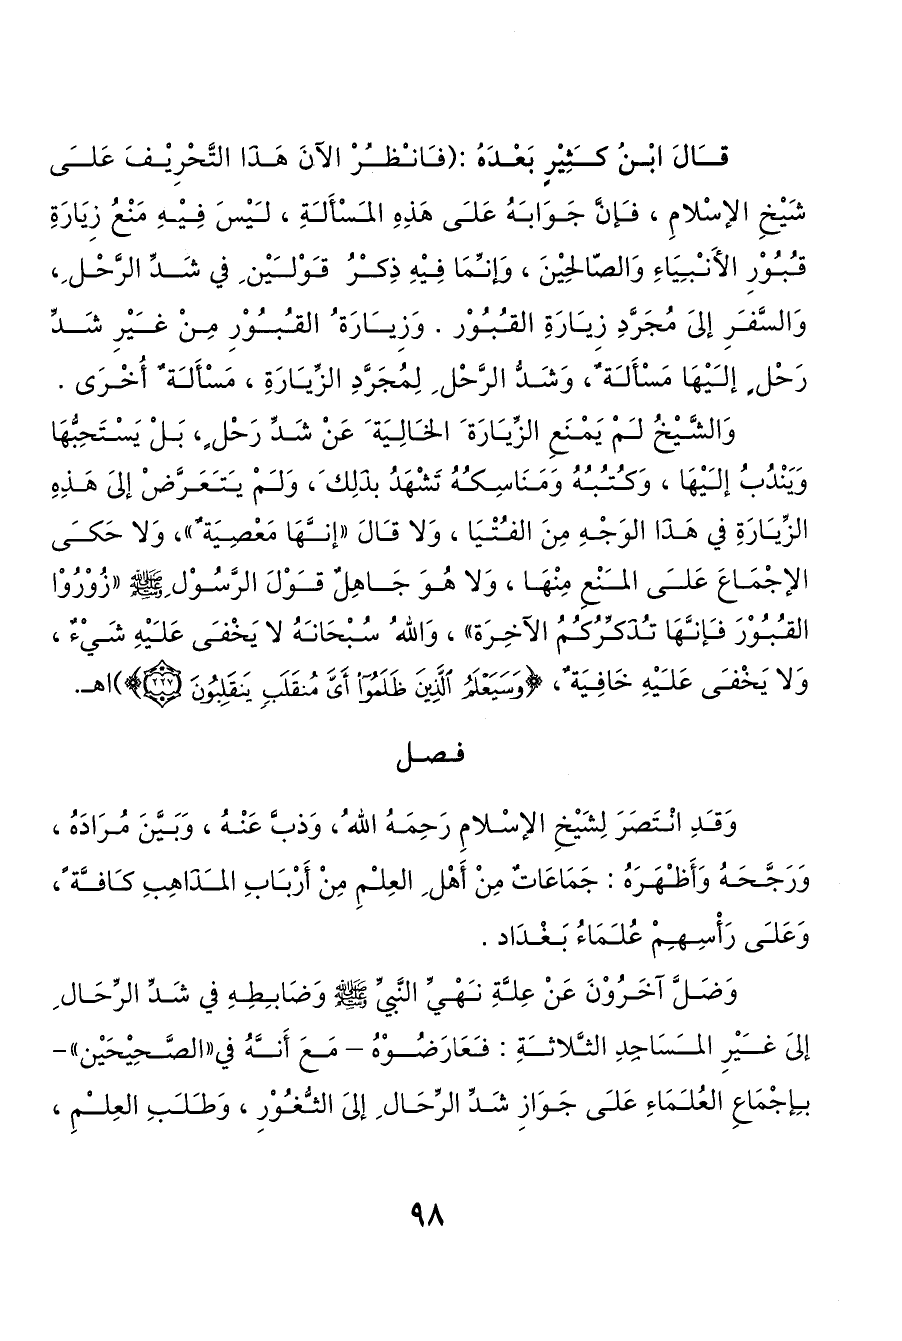 قَالَ ابْنُ كَثِيْرٍ بَعْدَهُ :(فَانْظُرْ الآنَ هَذَا التَّحْرِيْفَ عَلَى
شَيْخِ الإِسْلَامِ ، فَإِنَّ جَوَابَهُ عَلَى هَذِهِ المَسْأَلَةِ ، لَيْسَ فِيْهِ مَنْعُ زِيَارَةِ
قُبُوْرِ الأَنْبِيَاءِ وَالصَّالِحِيْنَ ، وَإِنَّمَا فِيْهِ ذِكْرُ قَوْلَيْنِ فِي شَدِّ الرَّحْلِ،
وَالسَّفَرِ إِلَى مُجَرَّدِ زِيَارَةِ القُبُوْرِ . وَزِيَارَةُ القُبُوْرِ مِنْ غَيْرِ شَدِّ
رَحْلٍ إِلَيْهَا مَسْأَلَةٌ، وَشَدُّ الرَّحْلِ لِمُجَرَّدِ الزِّيَارَةِ ، مَسْأَلَةٌ أُخْرَى .
وَالشَّيْخُ لَمْ يَمْنَعِ الزِّيَارَةَ الخَالِيَةَ عَنْ شَدِّ رَحْلٍ، بَلْ يَسْتَحِبُّهَا
وَيَنْدُبُ إِلَيْهَا ، وَكُتُبُهُ وَمَنَاسِكُهُ تَشْهَدُ بِذَلِكَ، وَلَمْ يَتَعَرَّضْ إِلَى هَذِهِ
الزِّيَارَةِ فِي هَذَا الوَجْهِ مِنَ الفُتْيَا ، وَلَا قَالَ «إِنَّهَا مَعْصِيَةٌ»، وَلَا حَكَى
الإِجْمَاعَ عَلَى المَنْعِ مِنْهَا ، وَلَا هُوَ جَاهِلٌ قَوْلَ الرَّسُوْلِ ﷺ «زُوْرُوْا
القُبُوْرَ فَإِنَّهَا تُذَكِّرُكُمُ الآخِرَةَ» ، وَاللهُ سُبْحَانَهُ لَا يَخْفَى عَلَيْهِ شَيْءٌ ،
وَلَا يَخْفَى عَلَيْهِ خَافِيَةٌ، ﴿وَسَيَعْلَمُ ٱلَّذِينَ ظَلَمُوٓا۟ أَىَّ مُنقَلَبٍ يَنقَلِبُونَ ٢٢٧﴾)اهـ.
فصل
وَقَدِ انْتَصَرَ لِشَيْخِ الإِسْلَامِ رَحِمَهُ اللهُ، وَذَبَّ عَنْهُ ، وَبَيَّنَ مُرَادَهُ ،
وَرَجَّحَهُ وَأَظْهَرَهُ : جَمَاعَاتٌ مِنْ أَهْلِ العِلْمِ مِنْ أَرْبَابِ المَذَاهِبِ كَافَّةً،
وَعَلَى رَأْسِهِمْ عُلَمَاءُ بَغْدَاد .
وَضَلَّ آخَرُوْنَ عَنْ عِلَّةِ نَهْيِ النَّبِيِّ ﷺ وَضَابِطِهِ فِي شَدِّ الرِّحَالِ
إِلَى غَيْرِ المَسَاجِدِ الثَّلَاثَةِ : فَعَارَضُوْهُ – مَعَ أَنَّهُ فِي«الصَّحِيْحَيْنِ»–
بِإِجْمَاعِ العُلَمَاءِ عَلَى جَوَازِ شَدِّ الرِّحَالِ إِلَى الثُّغُوْرِ ، وَطَلَبِ العِلْمِ ،
٩٨